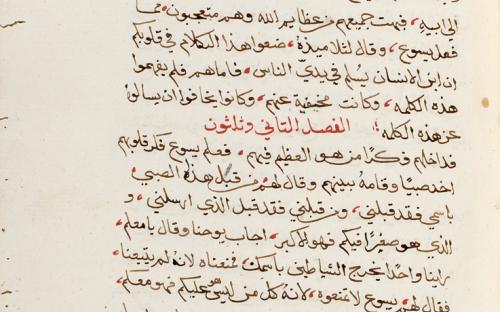 الي ابيه، فبهت جميعهم من عظايم الله وهم متعجبون مما
فعل يسوع، وقال لتلاميذه، ضعوا هذا الكلام في قلوبكم
ان ابن الانسان يسلم في يدي الناس، فاما هم فلم يفهموا
هذه الكلمه، وكانت مخفية عنهم، وكانوا يخافوا ان يسالوه
عن هذه الكلمه
الفصل الثاني وثلثون
فداخلهم فكرًا من هو العظيم فيهم، فعلم يسوع فكر قلوبهم
اخد صبيًا وقامه بينهم وقال لهم من قبل هذا الصبي
باسمي فقد قبلني، ومن قبلني فقد قبل الذي ارسلني، و
الذي هو صغيرًا فيكم فهو الاكبر، اجاب يوحنا وقال يا معلم
راينا واحدًا يخرج الشياطين باسمك، فمنعناه لانه لم يتبعنا
فقال لهم يسوع لا تمنعوه، لانه كل من ليس هو عليكم فهو معكم،